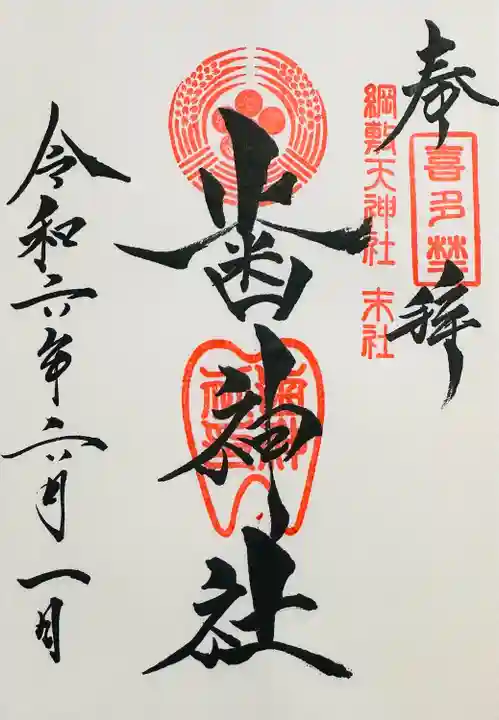 奉拝
喜多埜
綱敷天神社 末社
歯神社
歯神社
令和六年六月一日